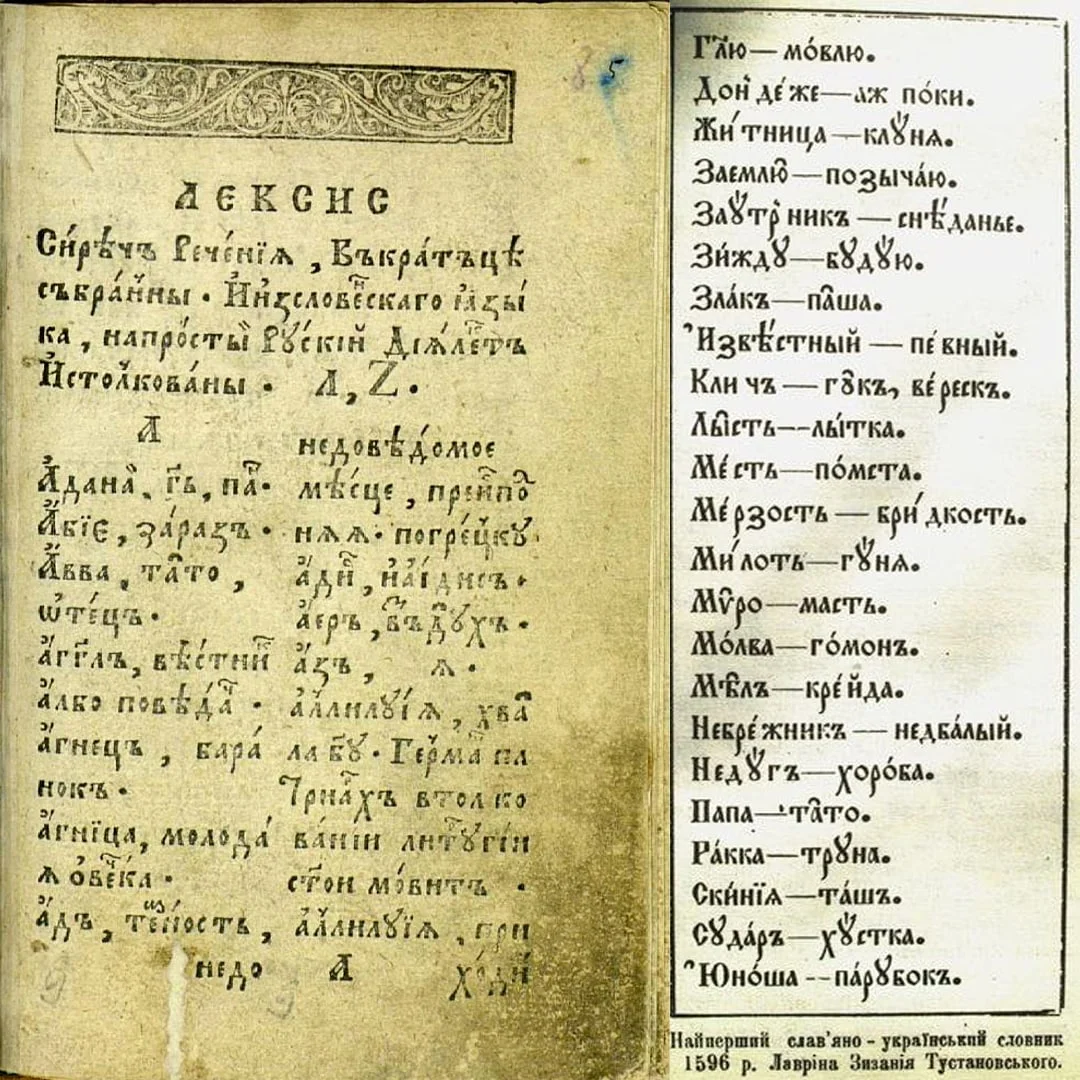 ЛЕКСИС
Си́рѣчъ Рече́нїѧ, Въкра́тъцѣ
събра́нны. И҆изслове́нскаго ꙗ҆зы́
ка, напро́стый Рꙋ́скїй Дїѧ́лектъ
И҆столкова́ны. Л, Z.
А
А҆дана̀, гь, па.
А҆́бїє, за́разъ.
А҆́вва, та́то,
ѿте́цъ.
а҆́гг҃лъ, вѣ́стник
а҆́лбо повѣда́ч.
а҆́гнецъ, бара́
нокъ.
а҆́гнїца, молода́
ѧ ове́чка.
а҆́дъ, те́мность,
недо
недовѣ́домое
мѣ́сце, преиспо
нѧѧ. погре́цкꙋ
а҆́ер, въздꙋхъ.
а҆́зъ, ѧ.
а҆ллилꙋ́їѧ, хва
ла бг҃ꙋ. Ге́рман па
трїарх втолко
ва́нїи литꙋргїи
ст҃ои мо́витъ.
а҆ллилꙋ́їѧ, при
А
хо́ди
Гл҃ю — мо́влю.
Дон̾де́же — аж по́ки.
Жи́тница — клꙋ́нѧ.
Заемлю̑ — позыча́ю.
Заꙋ́трникъ — снѣ́данье.
Зи́ждꙋ — бꙋдꙋ́ю.
Зла́къ — па́ша.
И҆звѣ́стный — пе́вный.
Кли́чъ — гꙋ̑къ, ве́рескъ.
Лы̑сть -- лы́тка.
Ме́сть — по́мста.
Ме́рзость — бри́дкость.
Ми́лоть — гꙋ́нѧ.
Мѵ̑ро — масть.
Мо́лва — го́монъ.
Мѣ̑лъ — кре́йда.
Небре́жникъ — недба́лый.
Недꙋ́гъ — хоро́ба.
Папа — та̑то.
Ра́кка — трꙋ́на.
Ски́нїѧ — та́шъ.
Сꙋда́ръ — хꙋ́стка.
Ю҆но́ша -- па́рꙋбокъ.
Найперший слав’яно - український словник
1596 р. Лавріна Зизанія Тустановського.